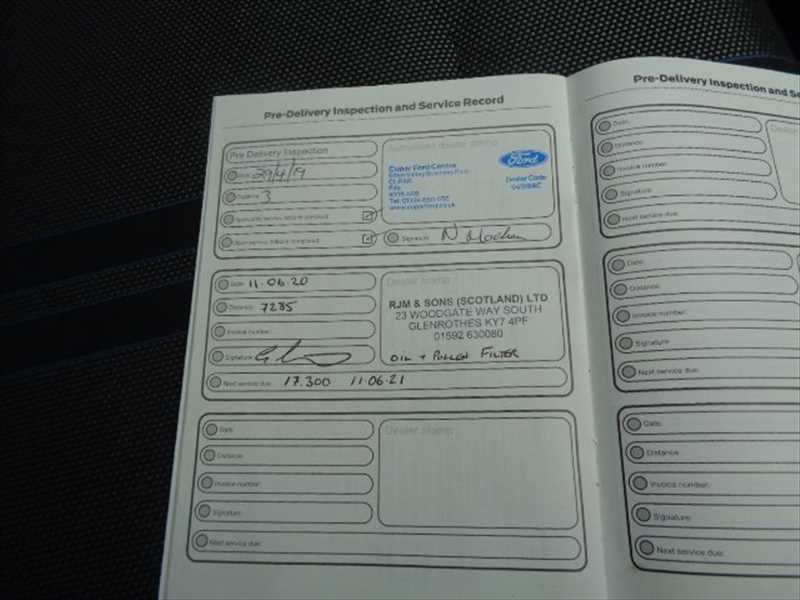 Pre-Delivery Inspection and Service Record
Pre Delivery Inspection
Date: 29/4/19
Distance: 3
Authorised dealer stamp
Cupar Ford Centre
CUPAR
Fife
Ford
Dealer Code
Signature:
Date: 11.06.20
Distance: 7285
Invoice number:
Signature:
Next service due: 17.300 11.06.21
Dealer stamp
RJM & SONS (SCOTLAND) LTD
23 WOODGATE WAY SOUTH
GLENROTHES KY7 4PF
01592 630080
OIL + POLLEN FILTER
Date:
Distance:
Invoice number:
Signature:
Next service due:
Dealer stamp
Pre-Delivery Inspection and Se
Date:
Distance:
Invoice number:
Signature:
Next service due:
Date:
Distance:
Invoice number:
Signature:
Next service due:
Date:
Distance:
Invoice number:
Signature:
Next service due: